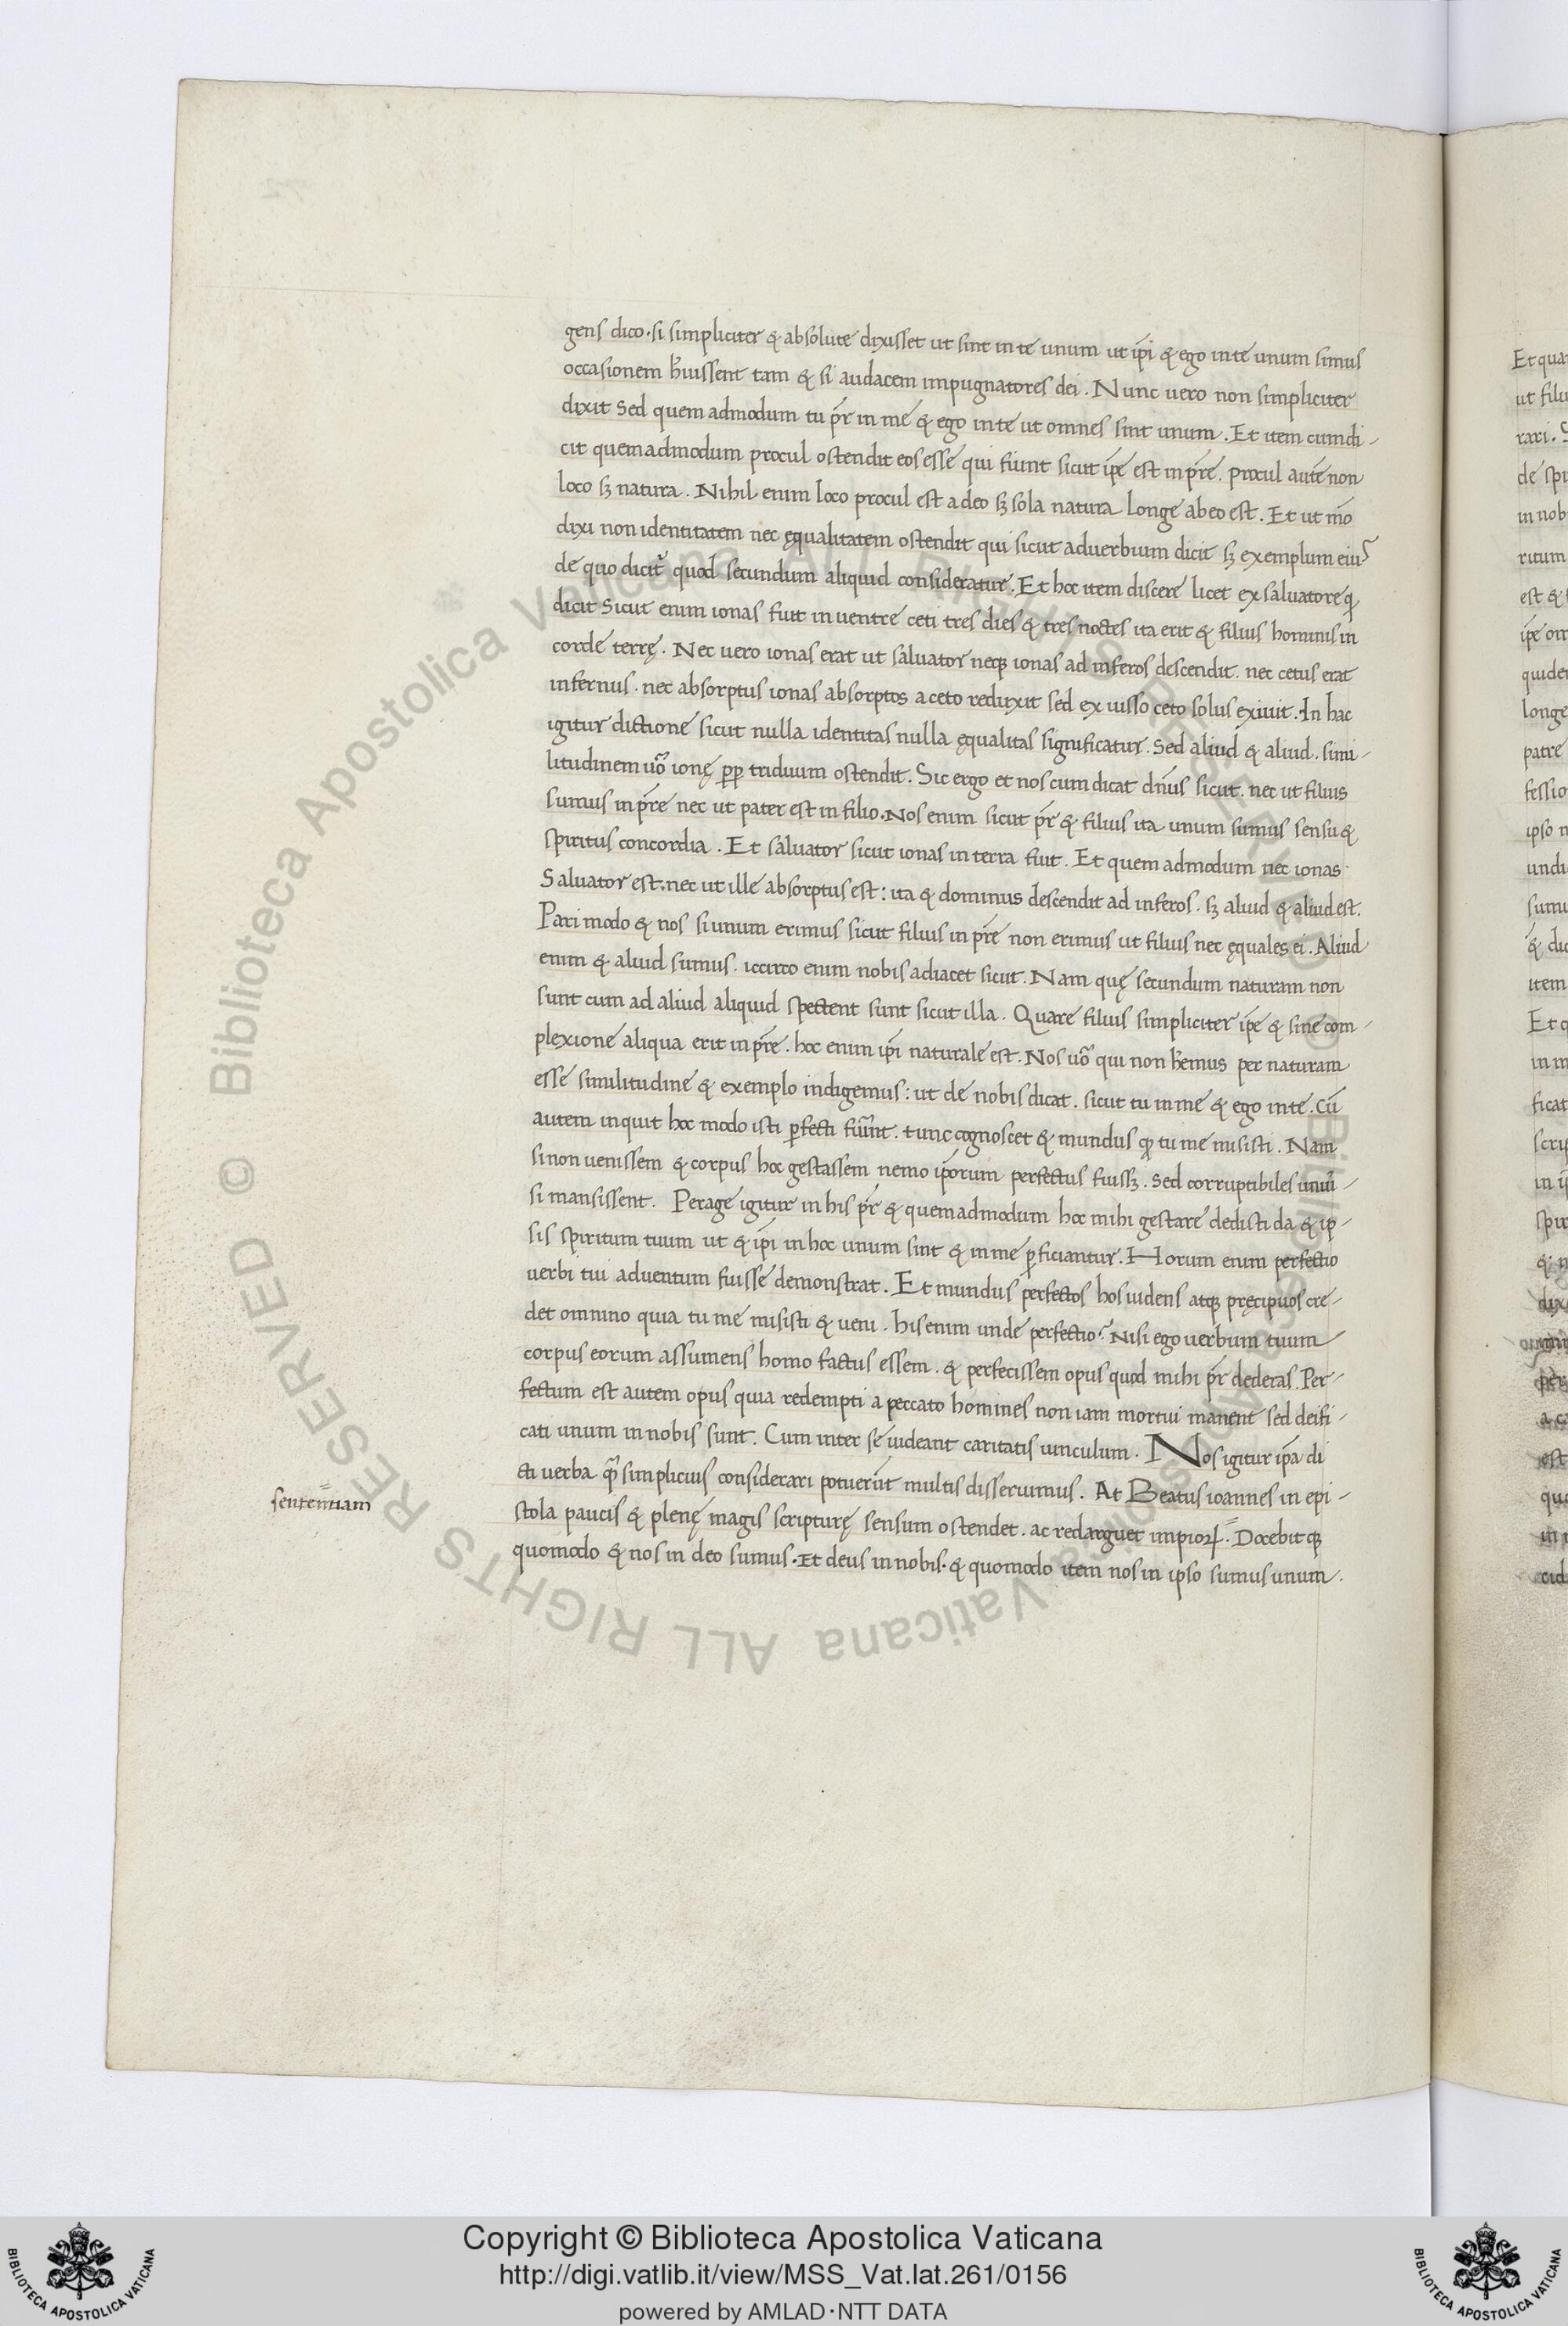 gens dico. si simpliciter & absolute dixisset ut sint in te unum ut ip̄i & ego in te unum simus
occasionem h̄uissent tam & si audacem impugnatores dei. Nunc uero non simpliciter
dixit Sed quem admodum tu pr̄ in me & ego in te ut omnes sint unum. Et item cum di-
cit quemadmodum procul ostendit eos esse qui fiunt sicut ip̄e est in pr̄e. procul autē non
loco sꝫ natura. Nihil enim loco procul est a deo sꝫ sola natura longe ab eo est. Et ut mō
dixi non identitatem nec ęqualitatem ostendit qui sicut aduerbium dicit sꝫ exemplum eius
de quo dicit᷑ quod secundum aliquid consideratur. Et hoc item discere licet ex saluatore ꝙ
dicit Sicut enim ionas fuit in uentre ceti tres dies & tres noctes ita erit & filius hominis in
corde terrę. Nec uero ionas erat ut saluator neqꝫ ionas ad inferos descendit. nec cetus erat
infernus. nec absorptus ionas absorptos a ceto reduxit sed ex iusso ceto solus exiuit. In hac
igitur dictione sicut nulla identitas nulla ęqualitas significatur. Sed aliud & aliud. simi-
litudinem uō ionę ꝓp̄ triduum ostendit. Sic ergo et nos cum dicat dn̄us sicut. nec ut filius
sumus in pr̄e nec ut pater est in filio. Nos enim sicut pr̄ & filius ita unum sumus sensu &
spiritus concordia. Et saluator sicut ionas in terra fuit. Et quem admodum nec ionas
Saluator est. nec ut ille absorptus est: ita & dominus descendit ad inferos. sꝫ aliud & aliud est.
Pari modo & nos si unum erimus sicut filius in pr̄e non erimus ut filius nec ęquales ei. Aliud
enim & aliud sumus. iccirco enim nobis adiacet sicut. Nam quę secundum naturam non
sunt cum ad aliud aliquid spectent sunt sicut illa. Quare filius simpliciter ip̄e & sine com-
plexione aliqua erit in pr̄e. hoc enim ip̄i naturale est. Nos uō qui non h̄emus per naturam
esse similitudine & exemplo indigemus: ut de nobis dicat. sicut tu in me & ego in te. Cū
autem inquit hoc modo isti ꝑfecti fuer̄int. tunc cognoscet & mundus ꝙ tu me misisti. Nam
si non uenissem & corpus hoc gestassem nemo ip̄orum perfectus fuissꝫ. Sed corruptibiles uniū-
si mansissent. Perage igitur in his pr̄ & quemadmodum hoc mihi gestare dedisti da & ip-
sis spiritum tuum ut & ip̄i in hoc unum sint & in me ꝑficiantur. Horum enim perfectio
uerbi tui aduentum fuisse demonstrat. Et mundus perfectos hos uidens atqꝫ pręcipuos cre-
det omnino quia tu me misisti & ueni. his enim unde perfectio? Nisi ego uerbum tuum
corpus eorum assumens homo factus essem. & perfecissem opus quod mihi pr̄ dederas. Per-
fectum est autem opus quia redempti a peccato homines non iam mortui manent sed deifi-
cati unum in nobis sunt. Cum inter se uideant caritatis uinculum. Nos igitur ip̄a di
cti uerba q̄ simplicius considerari potuerūt multis disseruimus. At Beatus ioannes in epi-
stola paucis & plenę magis scripturę sensum ostendet. ac redarguet impioꝝ. Docebitqꝫ
sententiam
quomodo & nos in deo sumus. Et deus in nobis. & quomodo item nos in ipso sumus unum.
Copyright © Biblioteca Apostolica Vaticana
http://digi.vatlib.it/view/MSS_Vat.lat.261/0156
powered by AMLAD·NTT DATA